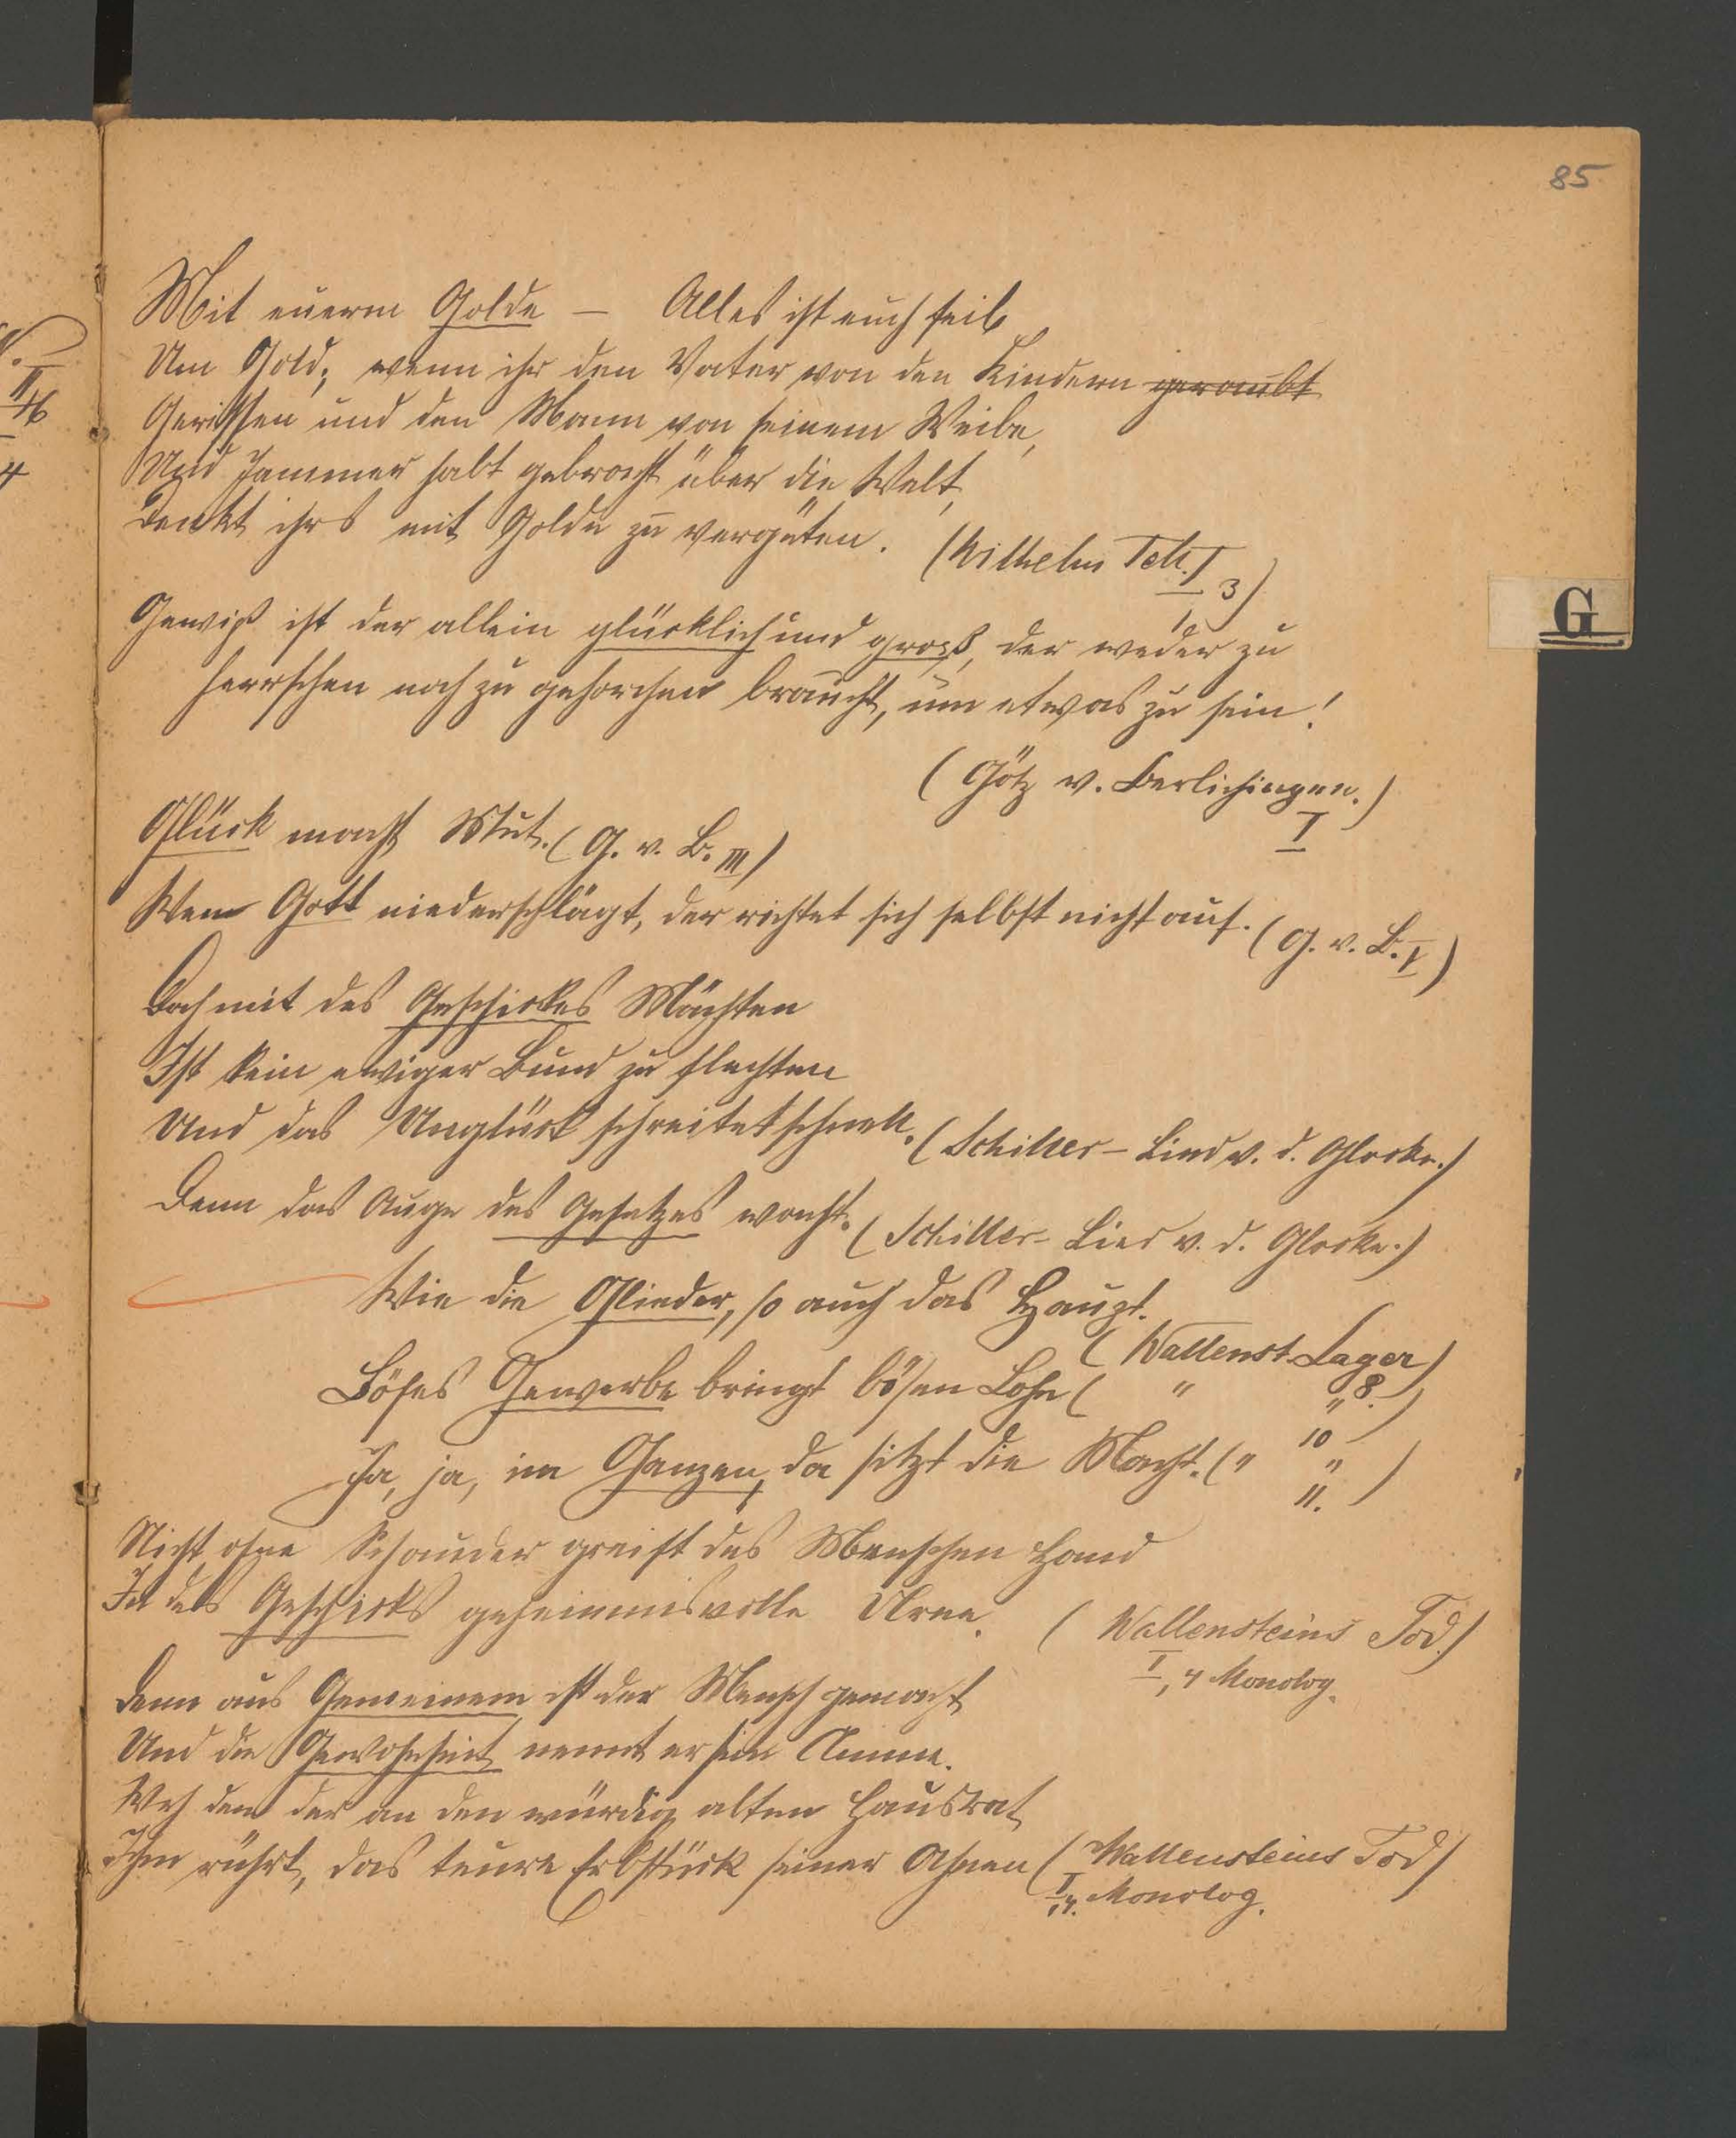 85
Mit euerm Golde – Alles ist euch feil
Um Gold; wenn ihr den Vater von den Kindern geraubt
Gerissen und den Mann von seinem Weibe,
Und Jammer habt gebracht über die Welt,
Denkt ihrs mit Golde zu vergüten. (Wilhelm Tell. I, 3)
Gewiß ist der allein glücklich und groß, der weder zu
herrschen noch zu gehorchen braucht, um etwas zu sein!
(Götz v. Berlichingen.)
I
Glück macht Mut. (G. v. B. III)
Wem Gott niederschlägt, der richtet sich selbst nicht auf. (G. v. B. V)
Doch mit des Geschickes Mächten
Ist kein ewiger Bund zu flechten
Und das Unglück schreitet schnell. (Schiller – Lied v. d. Glocke.)
Denn das Auge des Gesetzes wacht. (Schiller – Lied v. d. Glocke.)
Wie die Glieder, so auch das Haupt.
(Wallenst. Lager)
8.
Böses Gewerbe bringt bösen Lohn ( " " )
10
Ja, ja, im Ganzen, da sitzt die Macht. ( " " )
11.
Nicht ohne Schauder greift des Menschen Hand
In des Geschicks geheimnisvolle Urne. (Wallensteins Tod.)
I, 4 Monolog.
Denn aus Gemeinem ist der Mensch gemacht
Und die Gewohnheit nennt er sein Amme.
Weh dem der an den würdig alten Hausrat
Ihm rührt, das teure Erbstück seiner Ahnen (Wallensteins Tod)
I, 4. Monolog.
G
II
4